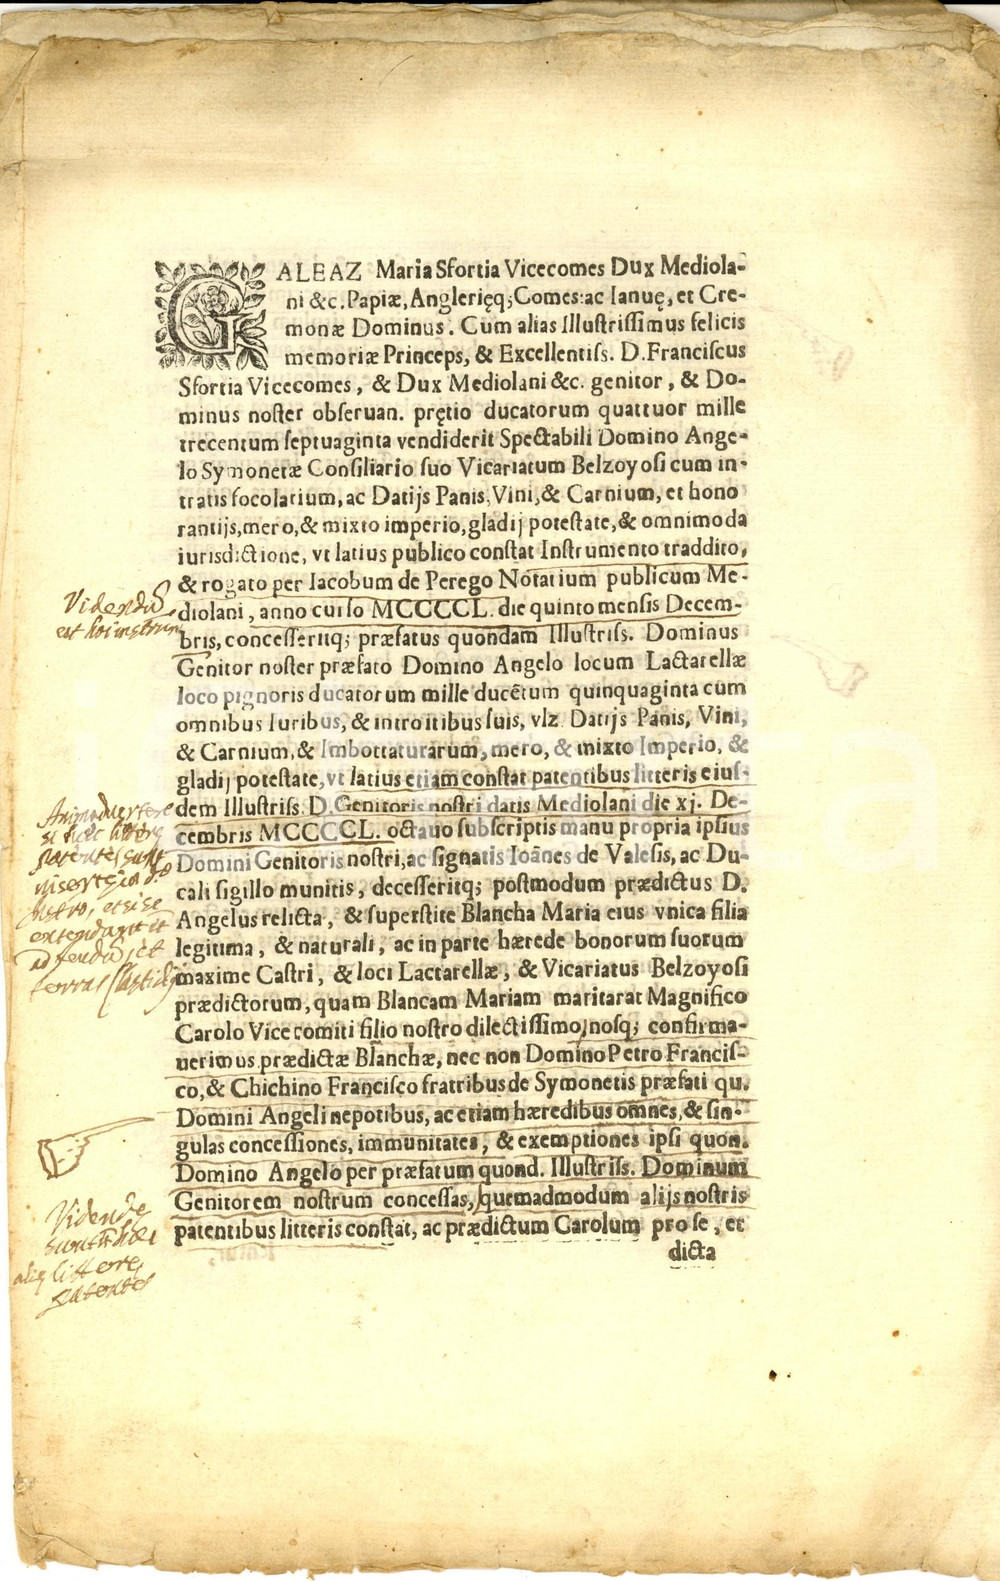 GALEAZ Maria Sfortia Vicecomes Dux Mediola-
ni &c. Papiæ, Anglerięq; Comes: ac Ianuę, et Cre-
monæ Dominus. Cum alias Illustrissimus felicis
memoriæ Princeps, & Excellentiss. D. Franciscus
Sfortia Vicecomes, & Dux Mediolani &c. genitor, & Do-
minus noster obseruan. prętio ducatorum quattuor mille
trecentum septuaginta vendiderit Spectabili Domino Ange-
lo Symonetæ Consiliario suo Vicariatum Belzoyosi cum in-
tratis focolarium, ac Datijs Panis, Vini, & Carnium, et hono
rantijs, mero, & mixto imperio, gladij potestate, & omnimoda
iurisdictione, vt latius publico constat Instrumento traddito,
& rogato per Iacobum de Perego Notarium publicum Me-
diolani, anno curso MCCCCL. die quinto mensis Decem-
bris, concesseritq; præfatus quondam Illustriss. Dominus
Genitor noster præfato Domino Angelo locum Lactarellæ
loco pignoris ducatorum mille ducētum quinquaginta cum
omnibus Iuribus, & introitibus suis, vlz. Datijs Panis, Vini,
& Carnium, & Imbottaturarum, mero, & mixto Imperio, &
gladij potestate, vt latius etiam constat patentibus litteris eius-
dem Illustriss. D. Genitoris nostri datis Mediolani die xj. De-
cembris MCCCCL. octauo subscriptis manu propria ipsius
Domini Genitoris nostri, ac signatis Ioānes de Valesis, ac Du-
cali sigillo munitis, decesseritq; postmodum prædictus D.
Angelus relicta, & superstite Blancha Maria eius vnica filia
legitima, & naturali, ac in parte hærede bonorum suorum
maxime Castri, & loci Lactarellæ, & Vicariatus Belzoyosi
prædictorum, quam Blancam Mariam maritarat Magnifico
Carolo Vicecomiti filio nostro dilectissimo, nosq; confirma-
uerimus prædictæ Blanchæ, nec non Domino Petro Francis-
co, & Chichino Francisco fratribus de Symonetis præfati qu.
Domini Angeli nepotibus, ac etiam hæredibus omnes, & sin-
gulas concessiones, immunitates, & exemptiones ipsi quon.
Domino Angelo per præfatum quond. Illustriss. Dominum
Genitorem nostrum concessas, quemadmodum alijs nostris
patentibus litteris constat, ac prædictum Carolum pro se, et
dicta
Videndū
est hoc instrum
Animaduertere
si hęc litterę
patentes sunt
registro, et si se
extendant
ad feudū, et
terras
Vidende
sunt
litterę
patentes